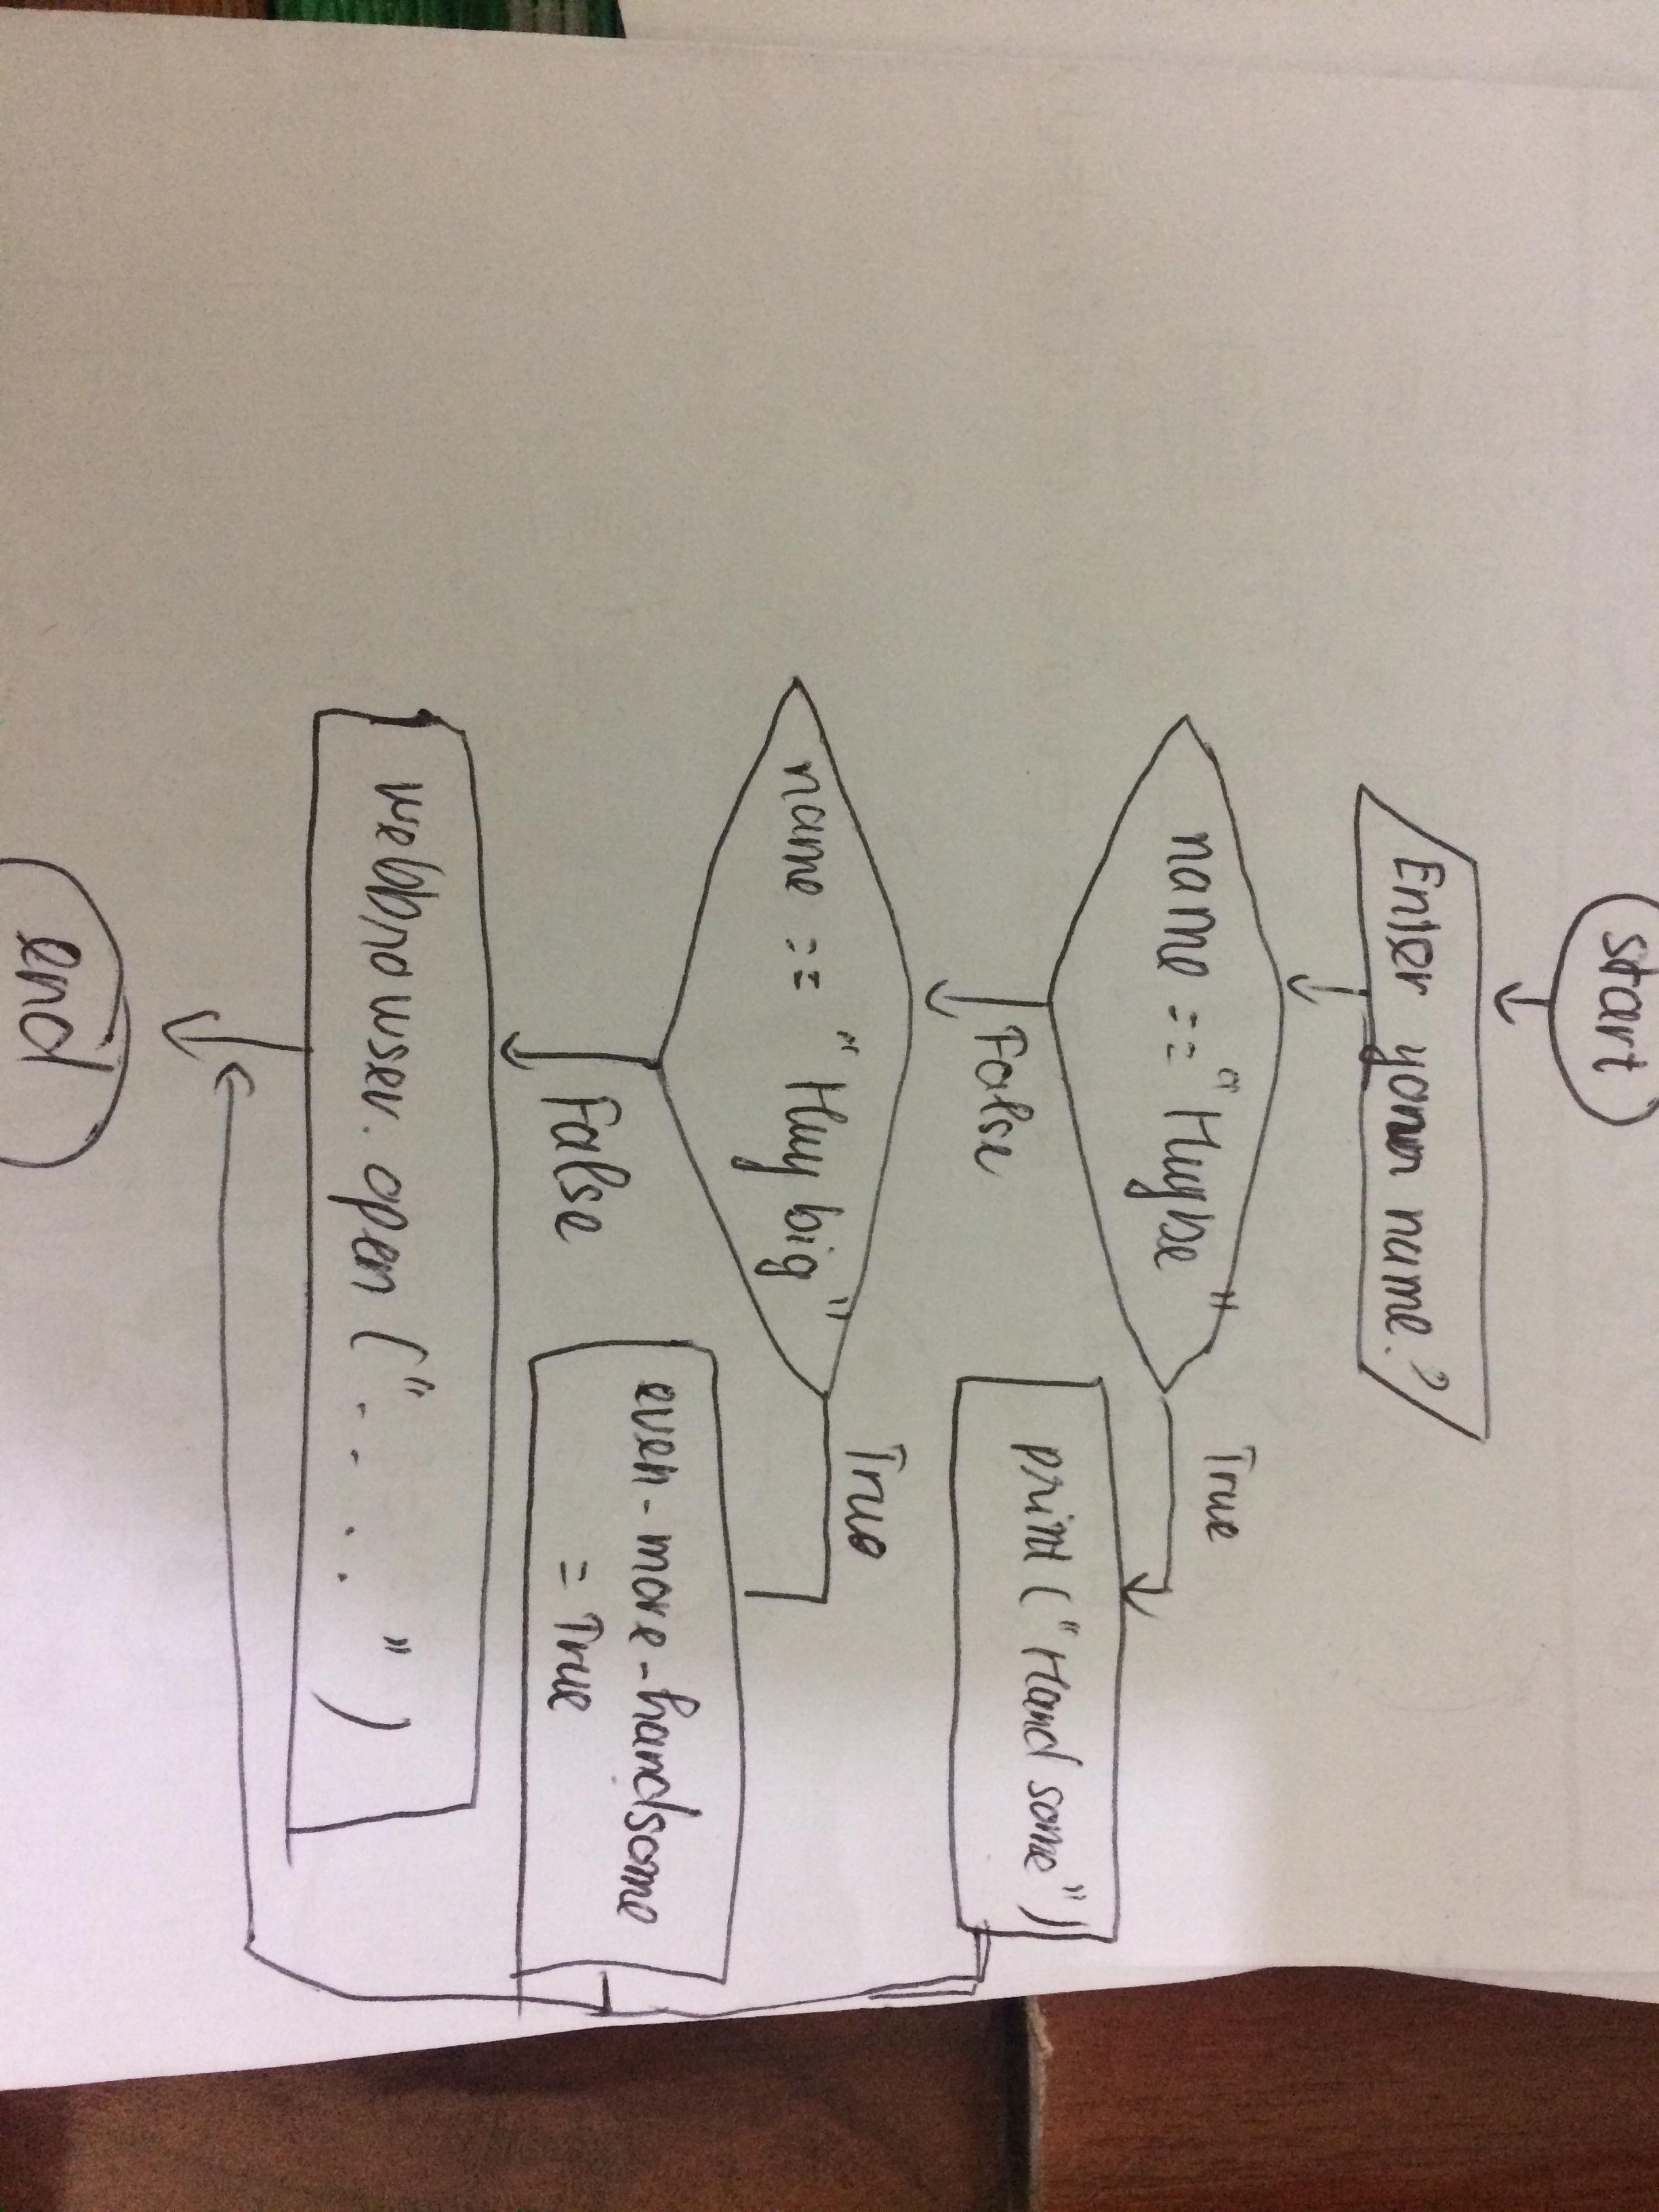 start
Enter your name?
name == "Huybe"
True
print ("Hand some")
False
name == "Huy big"
True
even-more-handsome
= True
False
webbrowser.open (". . . . . ")
end